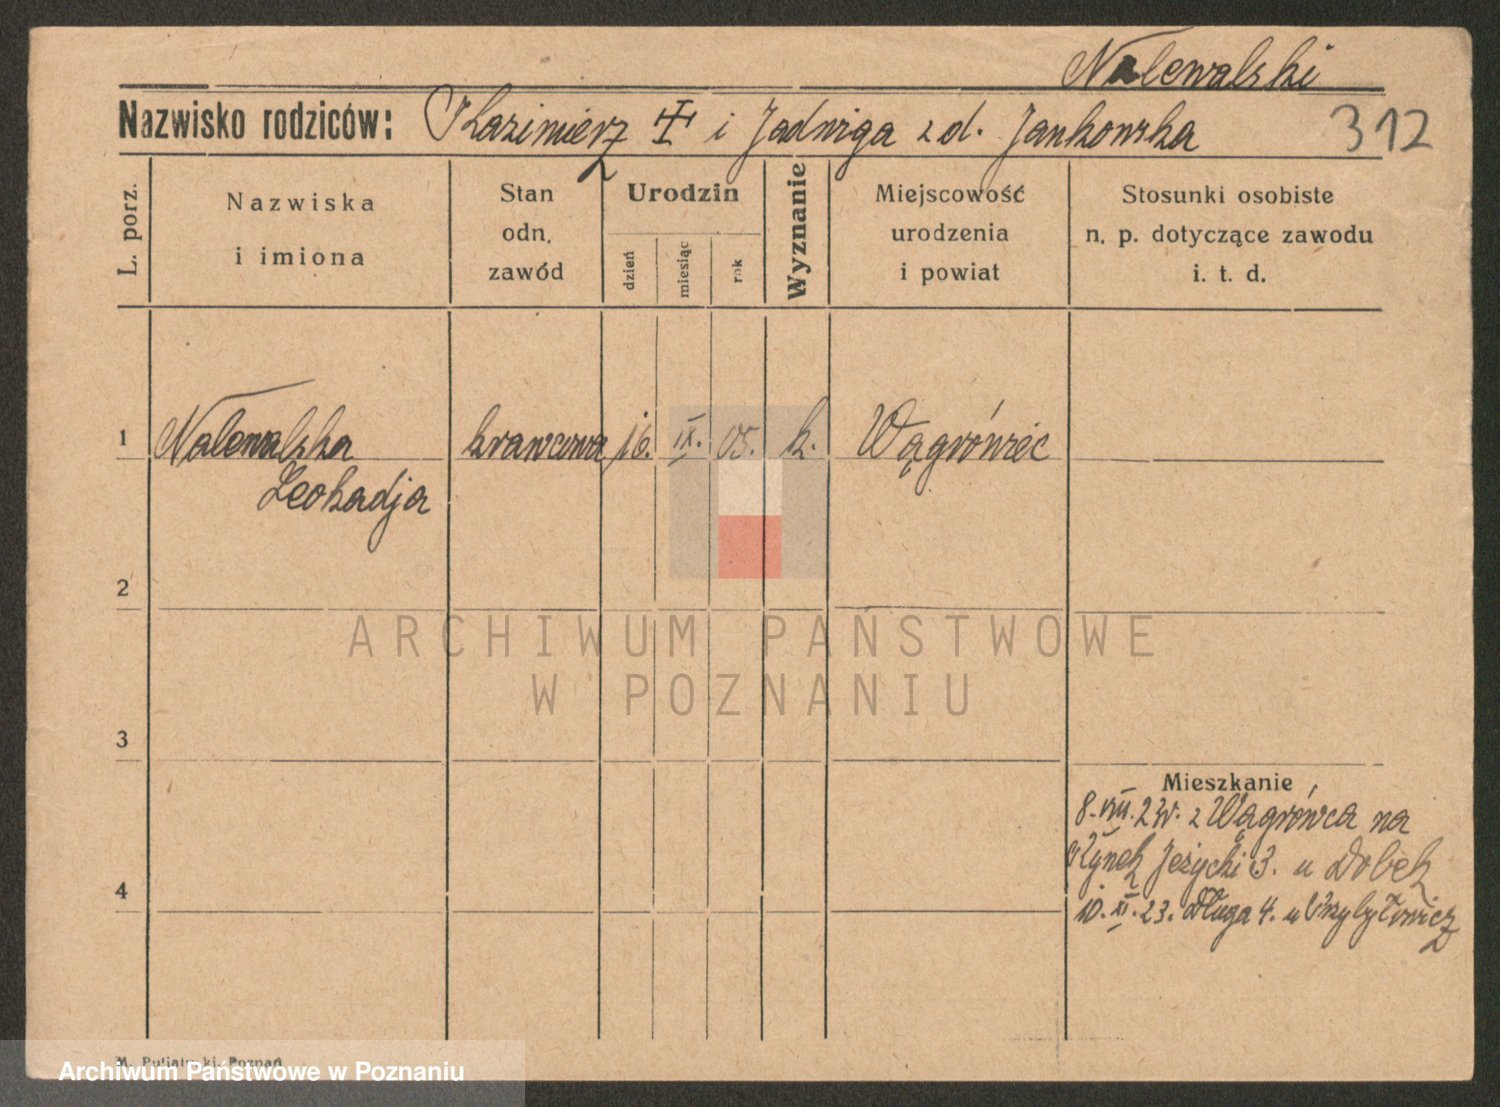 Nalewalski
Nazwisko rodziców: Kazimierz i Jadwiga z d. Jankowska 312
L. porz.
Nazwiska
i imiona
Stan
odn.
zawód
Urodzin
dzień
miesiąc
rok
Wyznanie
Miejscowość
urodzenia
i powiat
Stosunki osobiste
n. p. dotyczące zawodu
i. t. d.
1 Nalewalska krawcowa 16. IX. 05. k. Wągrówiec
Leokadja
2
ARCHIWUM PAŃSTWOWE
W POZNANIU
3
Mieszkanie
8. VIII. 23. z Wągrówca na
Rynek Jeżycki 3. u Dobek
4
10. XI. 23. Długa 4. u
M. Putiatycki, Poznań
Archiwum Państwowe w Poznaniu